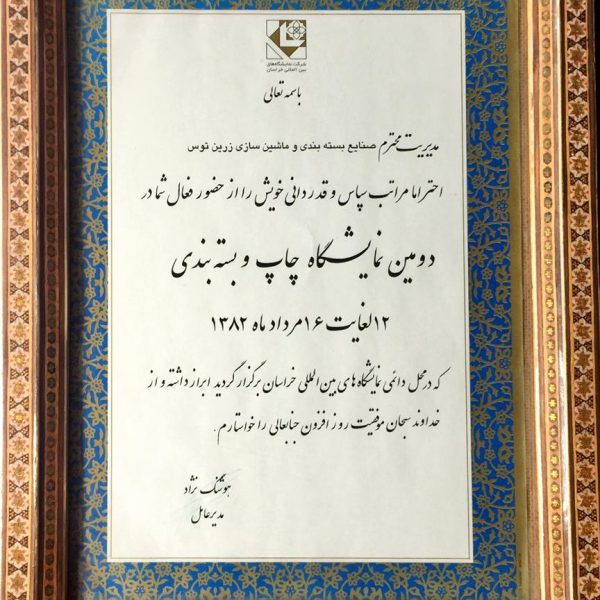 شرکت نمایشگاههای
بین المللی خراسان
باسمه تعالی
مدیریت محترم صنایع بسته بندی و ماشین سازی زرین توس
احتراما مراتب سپاس و قدردانی خویش را از حضور فعال شما در
دومین نمایشگاه چاپ و بسته بندی
۱۲ لغایت ۱۶ مرداد ماه ۱۳۸۲
که در محل دائمی نمایشگاه های بین المللی خراسان برگزار گردید ابراز داشته و از
خداوند سبحان موفقیت روز افزون جنابعالی را خواستارم .
هوشنگ نژاد
مدیر عامل